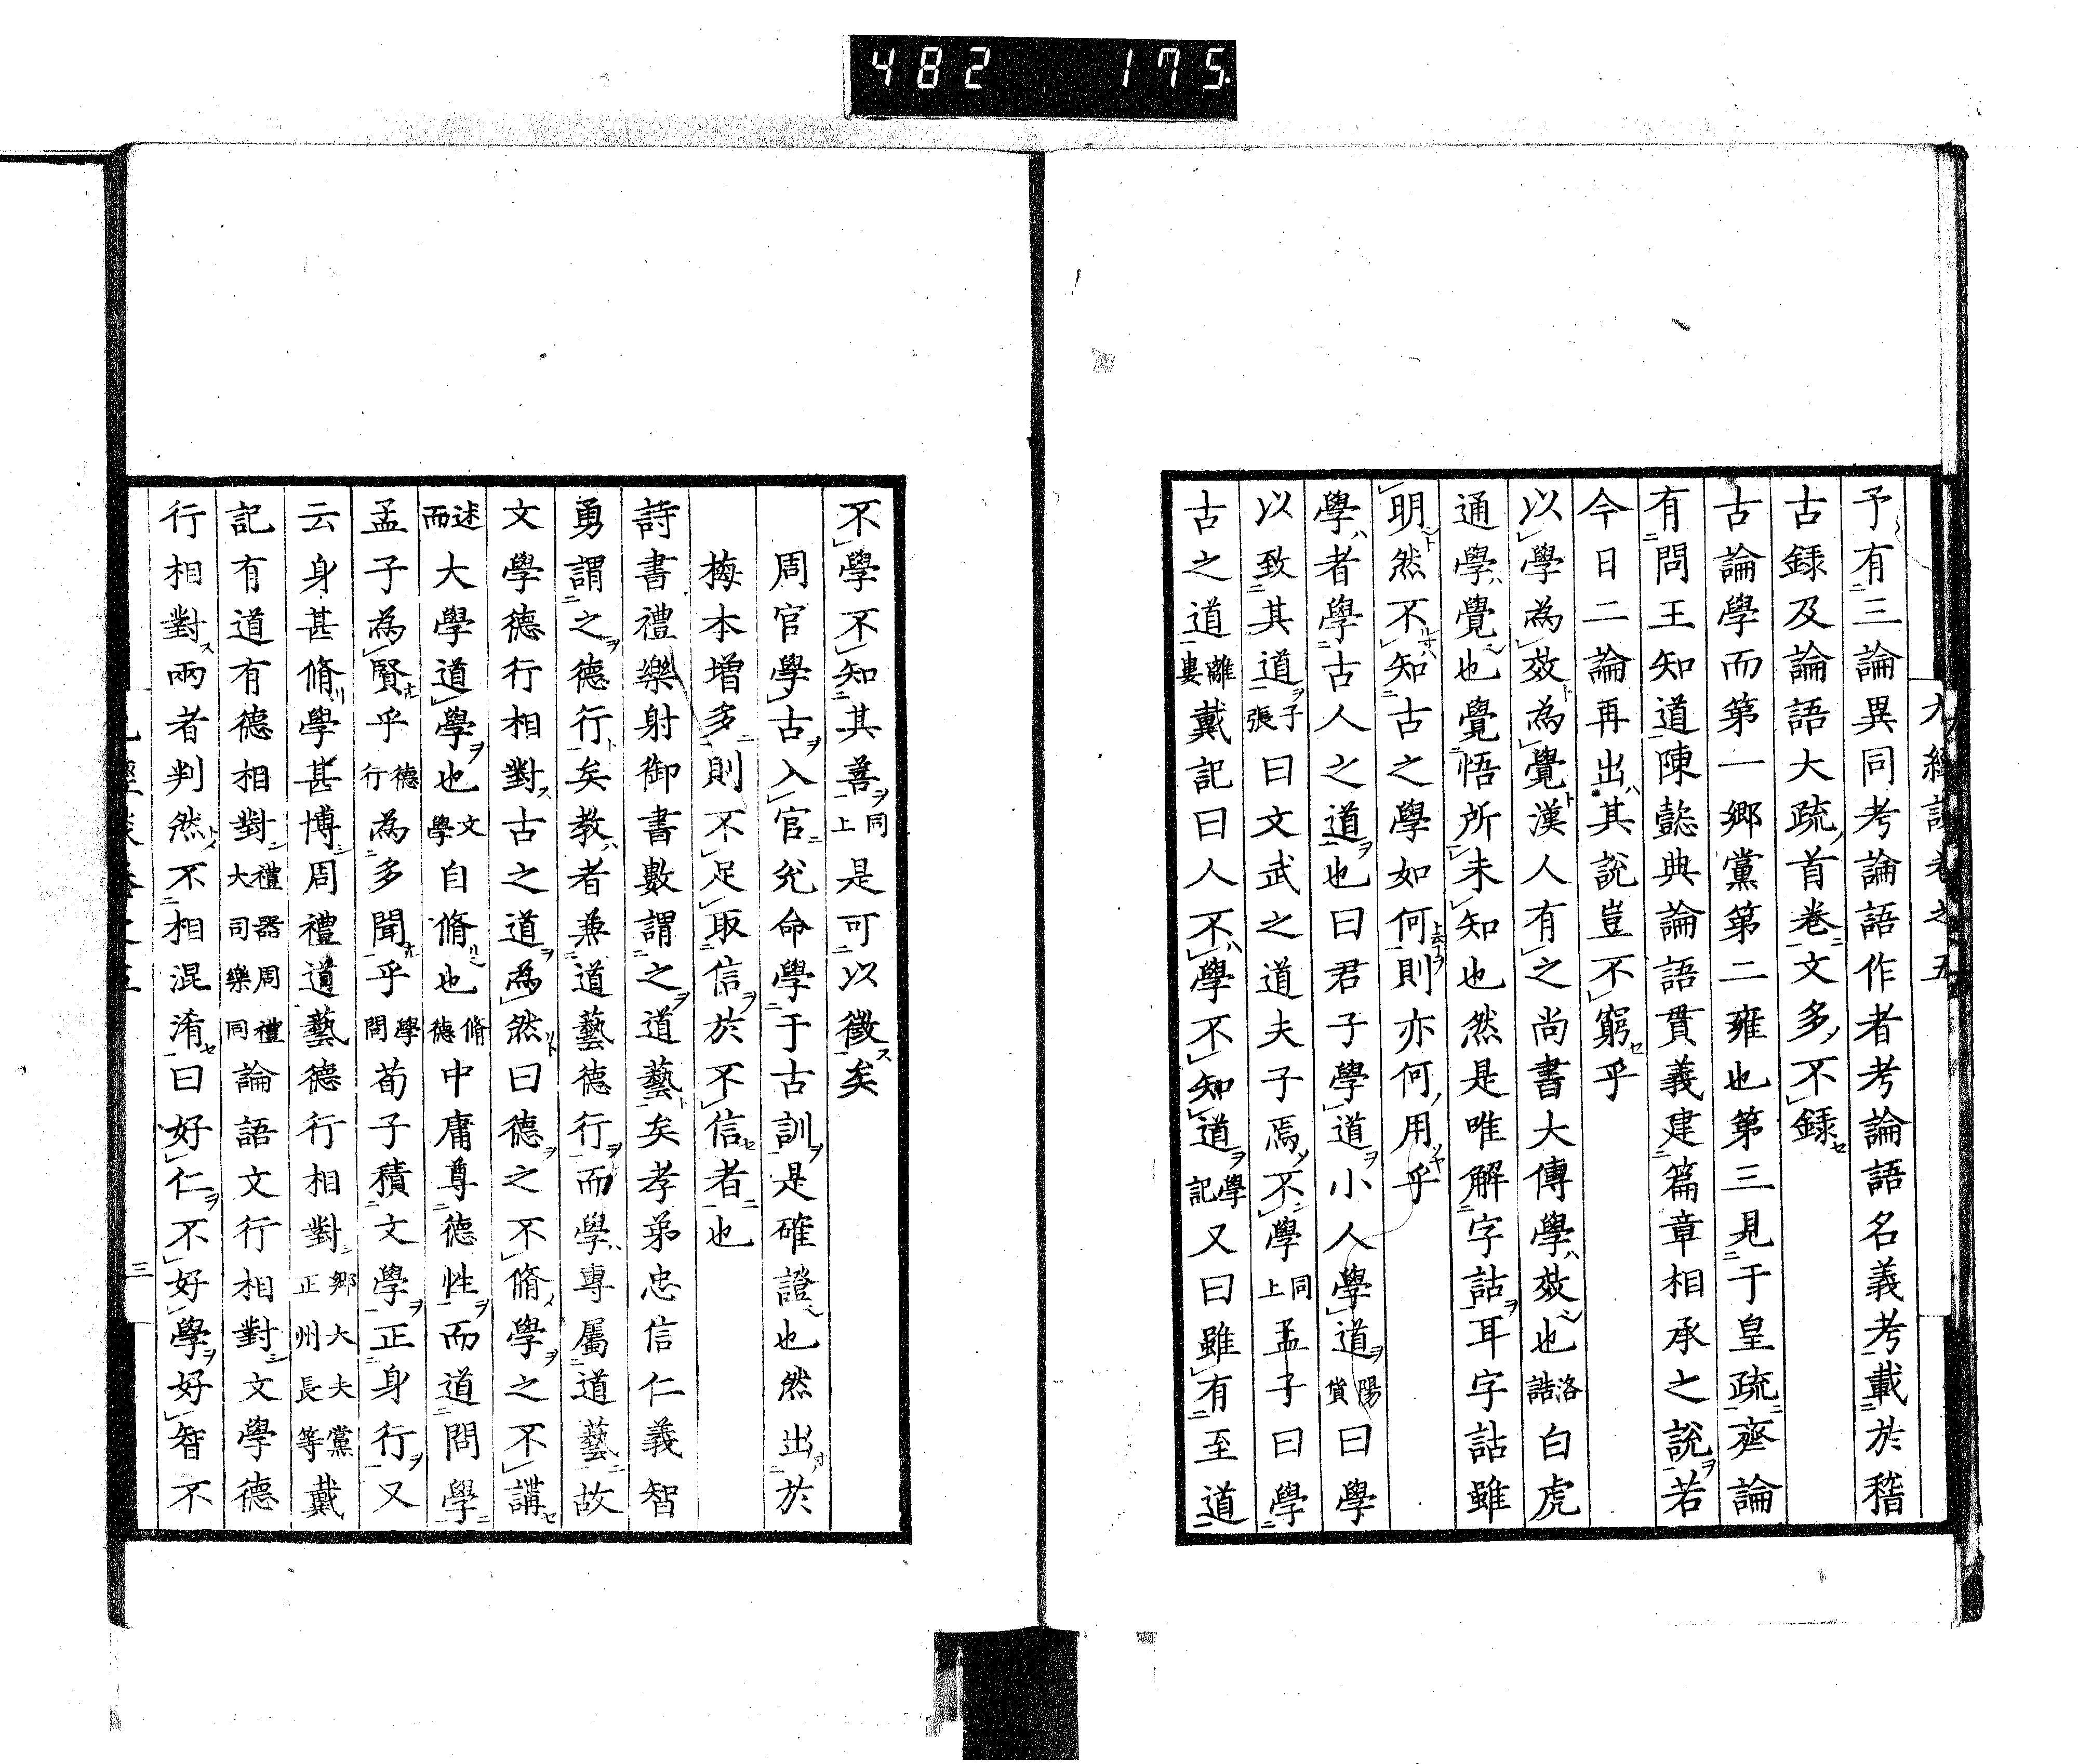 482 175
九經談卷之五
予有三論異同考論語作者考論語名義考載於稽
古録及論語大疏首卷文多不録
古論學而第一鄉黨第二雍也第三見于皇疏齊論
有問王知道陳懿典論語貫義建篇章相承之說若
今日二論再出其說豈不窮乎
以學為效為覺漢人有之尚書大傳學效也洛誥白虎
通學覺也覺悟所未知也然是唯解字詁耳字詁雖
明然不知古之學如何則亦何用乎
學者學古人之道也曰君子學道小人學道陽貨曰學
以致其道子張曰文武之道夫子焉不學同上孟子曰學
古之道離婁戴記曰人不學不知道學記又曰雖有至道
不學不知其善同上是可以徵矣
周官學古入官兌命學于古訓是確證也然出於
梅本增多則不足取信於不信者也
詩書禮樂射御書數謂之道藝矣孝弟忠信仁義智
勇謂之德行矣教者兼道藝德行而學專屬道藝故
文學德行相對古之道為然曰德之不脩學之不講
述而大學道學也文學自脩也脩德中庸尊德性而道問學
孟子為賢乎德行為多聞乎學問荀子積文學正身行又
云身甚脩學甚博周禮道藝德行相對鄉大夫黨正州長等戴
記有道有德相對禮器周禮大司樂同論語文行相對文學德
行相對兩者判然不相混淆曰好仁不好學好智不
九經談卷之五
三